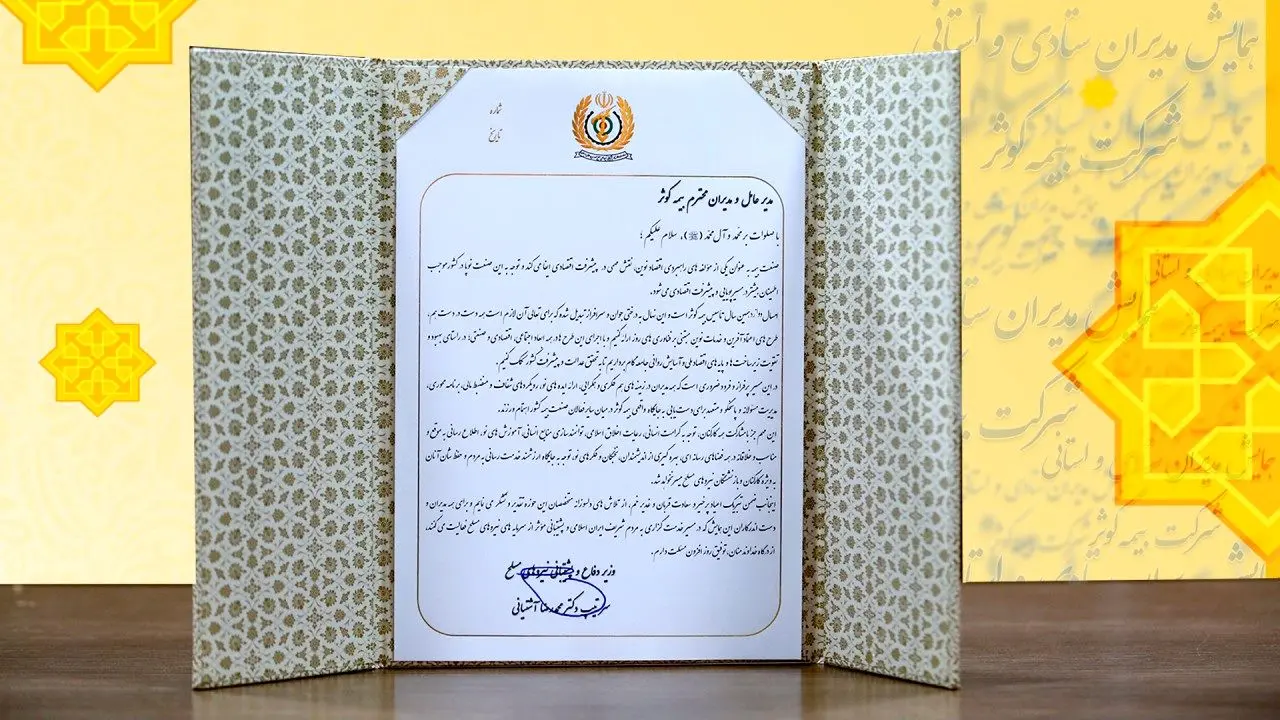 شماره
تاریخ
مدیر عامل و مدیران محترم بیمه کوثر
با صلوات بر محمد و آل محمد (ﷺ)، سلام علیکم ؛
صنعت بیمه به عنوان یکی از مولفه های راهبردی اقتصاد نوین، نقش مهمی در پیشرفت اقتصادی ایفا می کند و توجه به این صنعت نوپا در کشور موجب
اطمینان بیشتر در مسیر پویایی و پیشرفت اقتصادی می شود.
امسال دوازدهمین سال تاسیس بیمه کوثر است و این نهال به درختی جوان و سرافراز تبدیل شده که برای تعالی آن لازم است همه دست در دست هم
طرح های اعتماد آفرین و خدمات نوین مبتنی بر فناوری های روز ارائه کنیم و با اجرای این طرح ها در همه ابعاد اجتماعی، اقتصادی و صنعتی در راستای بهبود و
تقویت زیرساخت ها و پایه های اقتصاد ملی و آسایش روانی جامعه گام برداریم تا به تحقق عدالت و پیشرفت کشور کمک کنیم.
در این مسیر پرفراز و فرود ضروری است که همه مدیران در زمینه های هم فکری و همگرایی، ارائه ایده های نو، رویکردهای شفاف و منضبط مالی، برنامه محوری،
مدیریت مسئولانه و پاسخگو و متعهد برای دست یابی به جایگاه واقعی بیمه کوثر در میان سایر فعالان صنعت بیمه کشور اهتمام ورزند.
این مهم جز با مشارکت همه کارکنان، توجه به کرامت انسانی، رعایت اخلاق اسلامی، توانمند سازی منابع انسانی، آموزش های نو، اطلاع رسانی به موقع و
مناسب و خلاقانه در همه فضاهای رسانه ای، بهره گیری از اندیشمندان، نخبگان و فکرهای نو، توجه به جایگاه ارزشمند خدمت رسانی به مردم و حفظ شان آنان
به ویژه کارکنان و بازنشستگان نیروهای مسلح میسر نخواهد شد.
اینجانب ضمن تبریک اعیاد پرخیر و سعادت قربان و غدیر خم، از تلاش های دلسوزانه متخصصان این حوزه تقدیر و تشکر می نمایم و برای همه مدیران و
دست اندرکاران این همایش که در مسیر خدمت گزاری به مردم شریف ایران اسلامی و پشتیبانی موثر از سرمایه های نیروهای مسلح فعالیت می کنند،
از درگاه خداوند منان، توفیق روز افزون مسئلت دارم.
وزیر دفاع و پشتیبانی نیروهای مسلح
سرتیپ دکتر محمدرضا آشتیانی
همایش مدیران ستادی و استانی
شرکت بیمه کوثر
همایش مدیران ستادی و استانی
شرکت بیمه کوثر
همایش مدیران ستادی و استانی
شرکت بیمه کوثر